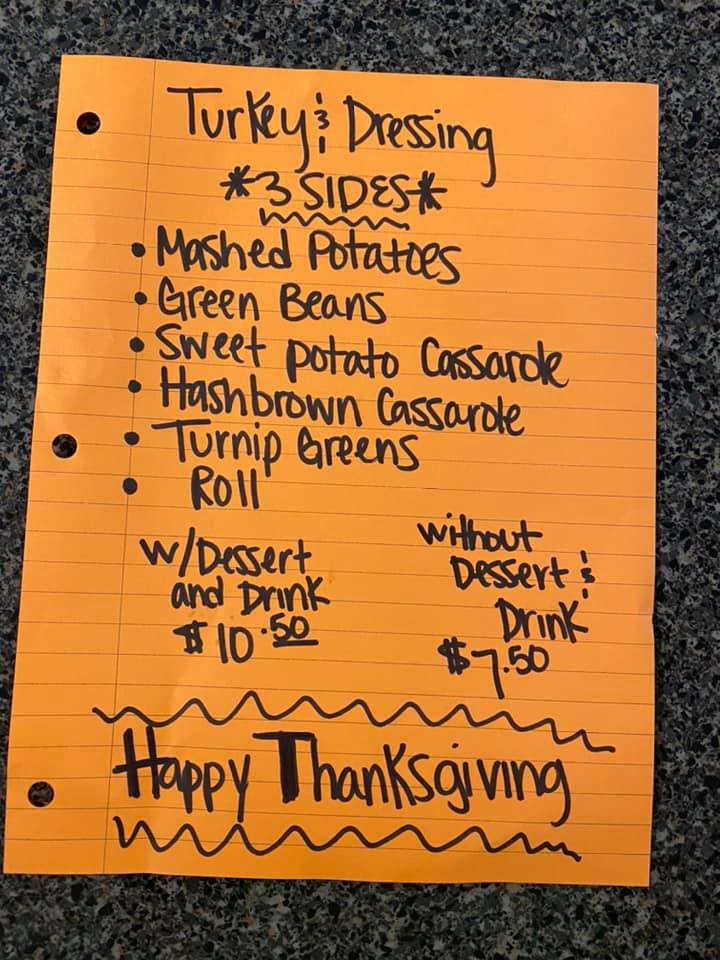 Turkey & Dressing
*3 SIDES*
• Mashed Potatoes
• Green Beans
• Sweet potato Cassarole
• Hashbrown Cassarole
• Turnip Greens
• Roll
w/Dessert
and Drink
$10.50
without
Dessert &
Drink
$7.50
Happy Thanksgiving